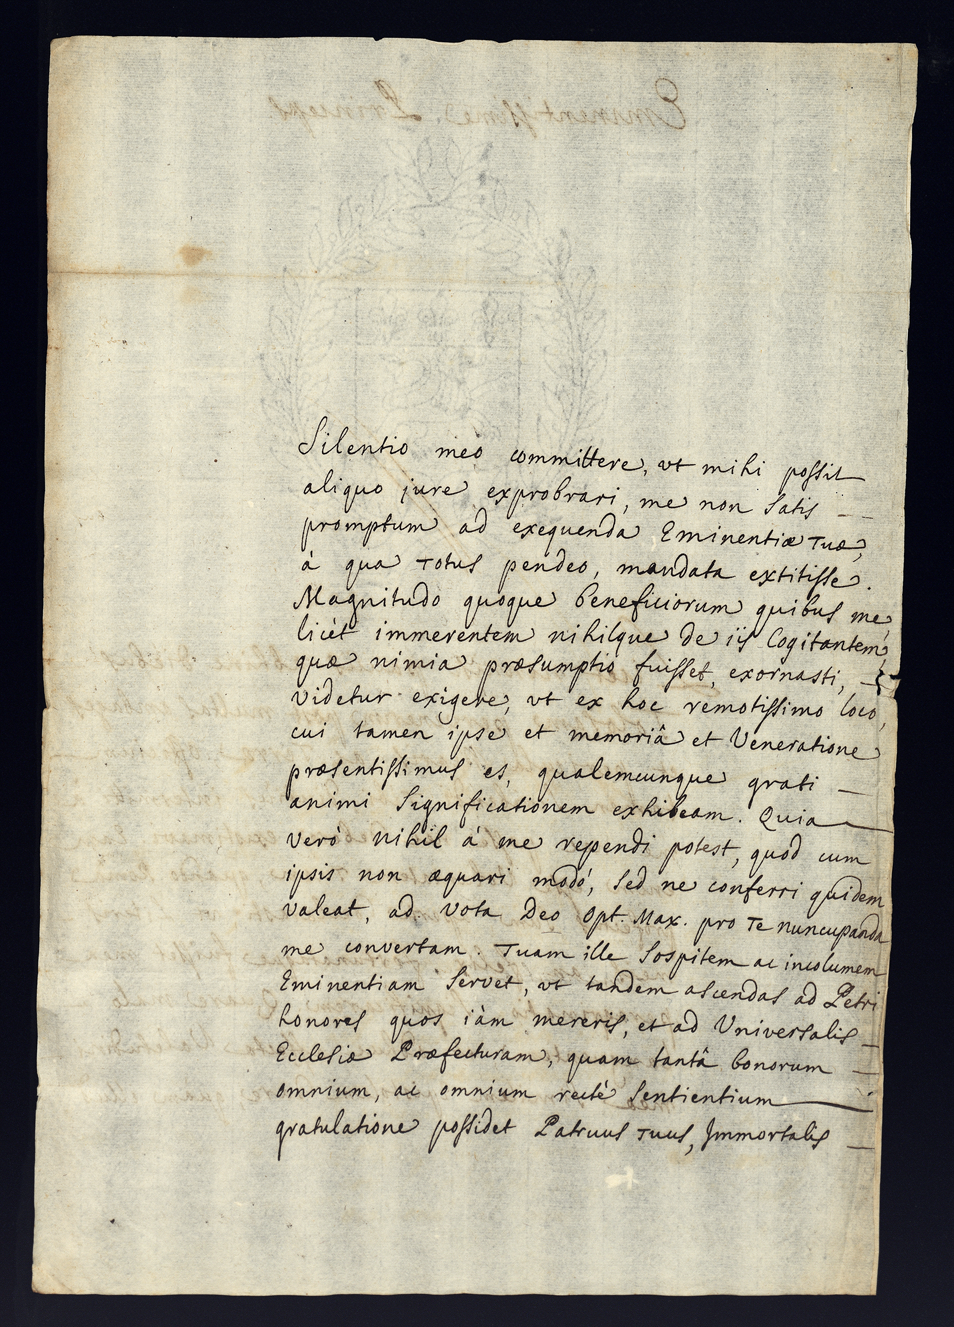 Silentio meo committere, vt mihi possit
aliquo jure exprobrari, me non satis
promptum ad exequenda Eminentiæ Tuæ,
à qua Totus pendeo, mandata extitisse.
Magnitudo quoque beneficiorum quibus me
licèt immerentem nihilque de iis Cogitantem,
quæ nimia præsumptio fuisset, exornasti,
videtur exigere, vt ex hoc remotissimo loco,
cui tamen ipse et memoriâ et Veneratione
præsentissimus es, qualemcunque grati
animi significationem exhibeam. Quia
verò nihil à me rependi potest, quod cum
ipsis non æquari modò, sed ne conferri quidem
valeat, ad vota Deo Opt. Max. pro Te nuncupanda
me convertam. Tuam ille Sospitem ac incolumem
Eminentiam Servet, vt tandem ascendas ad Petri
honores quos iàm mereris, et ad Vniversalis
Ecclesiæ Præfecturam, quam tantâ bonorum
omnium, ac omnium rectè Sentientium
gratulatione possidet Patruus Tuus, Jmmortalis
Eminentissime Princeps